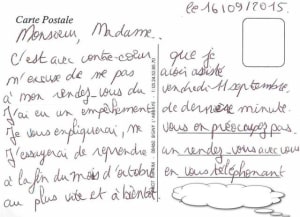 le 16/09/2015.
Carte Postale
Monsieur, Madame..
C'est avec contre-cœur
m'excuse de ne pas
à mon rendez-vous du
J'ai eu un empêchement
Je vous expliquerai, ne
J'essayerai de reprendre
à la fin du mois d'octobre
au plus vite et à bientôt
que je
avoir assisté
vendredi 11 septembre.
de dernière minute.
vous en préoccupez pas.
un rendez-vous avec vous
en vous téléphonant